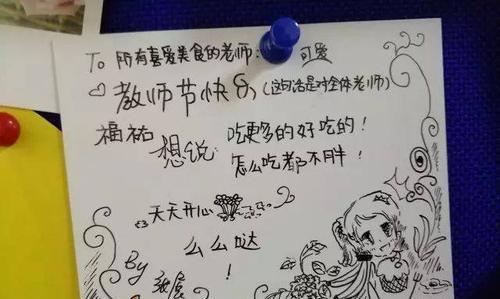 To 所有喜爱美食的老师：
可爱
教师节快乐（这句话是对全体老师）
福祐
想说：吃更多的好吃的！
怎么吃都不胖！
天天开心
么么哒
！
By